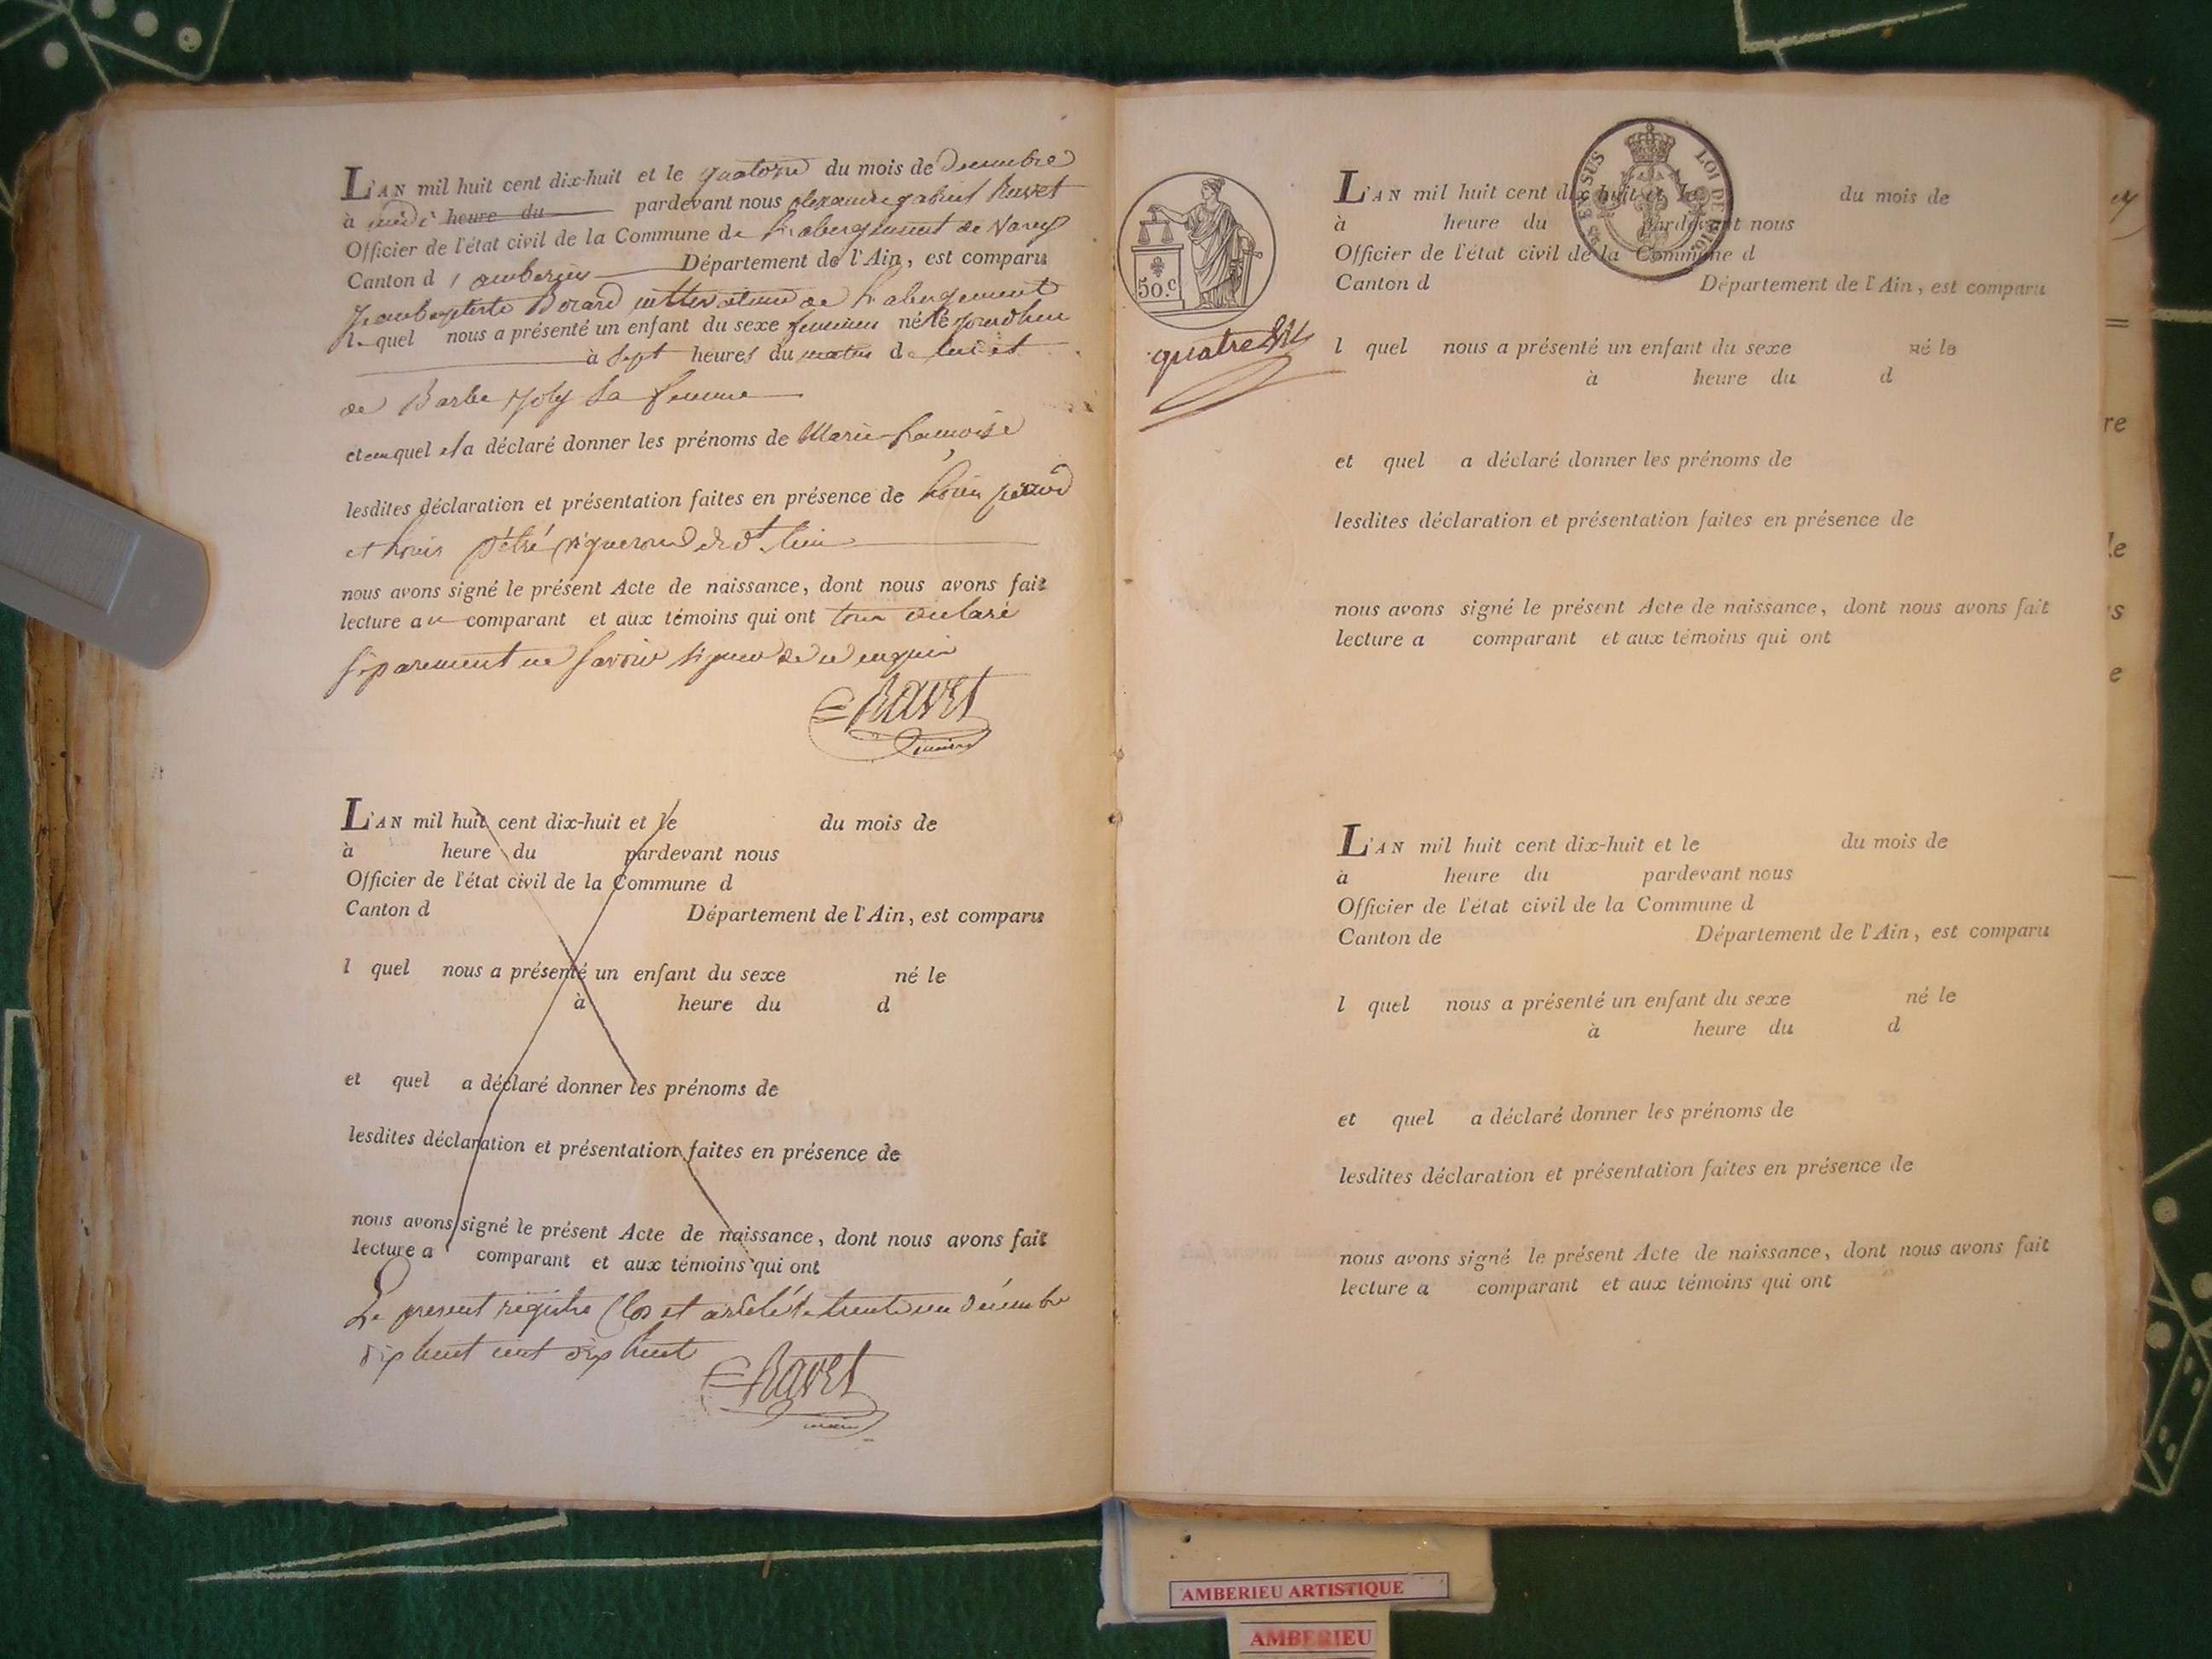 L'AN mil huit cent dix-huit et le quatorze du mois de Decembre
à midi heure du pardevant nous alexandre gabriel Ravet
Officier de l'état civil de la Commune de L'abergement de Varey
Canton d'amberieu Département de l'Ain, est comparu
Jean baptiste de L'abergement
le quel nous a présenté un enfant du sexe feminin né le jourdhui
à sept heures du matin de lui et
de Barbe Joly sa femme
et auquel il a déclaré donner les prénoms de Marie francoise
lesdites déclaration et présentation faites en présence de Louis
et Louis vigneron
nous avons signé le présent Acte de naissance, dont nous avons fait
lecture au comparant et aux témoins qui ont tous déclaré
séparement ne savoir signer de ce enquis
Ravet
maire
L'AN mil huit cent dix-huit et le du mois de
à heure du pardevant nous
Officier de l'état civil de la Commune d
Canton d Département de l'Ain, est comparu
l quel nous a présenté un enfant du sexe né le
à heure du d
et quel a déclaré donner les prénoms de
lesdites déclaration et présentation faites en présence de
nous avons signé le présent Acte de naissance, dont nous avons fait
lecture a comparant et aux témoins qui ont
Le present registre Clos et arrêté le trente un décembre
dix huit cent dix huit
Ravet
maire
50.c
quatre
EN SUS LOI DE
L'AN mil huit cent dix-huit et le du mois de
à heure du pardevant nous
Officier de l'état civil de la Commune d
Canton d Département de l'Ain, est comparu
l quel nous a présenté un enfant du sexe né le
à heure du d
et quel a déclaré donner les prénoms de
lesdites déclaration et présentation faites en présence de
nous avons signé le présent Acte de naissance, dont nous avons fait
lecture a comparant et aux témoins qui ont
L'AN mil huit cent dix-huit et le du mois de
à heure du pardevant nous
Officier de l'état civil de la Commune d
Canton de Département de l'Ain, est comparu
l quel nous a présenté un enfant du sexe né le
à heure du d
et quel a déclaré donner les prénoms de
lesdites déclaration et présentation faites en présence de
nous avons signé le présent Acte de naissance, dont nous avons fait
lecture a comparant et aux témoins qui ont
AMBERIEU ARTISTIQUE
AMBERIEU